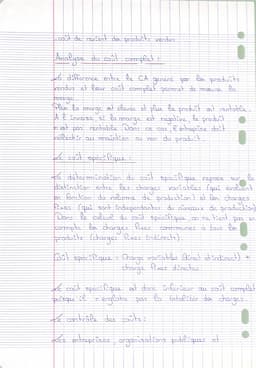 coût de revient des produits vendus
Analyse du coût complet :
La différence entre le CA généré par les produits
vendus et leur coût complet permet de mesurer la
marge.
Plus la marge est élevée et plus le produit est rentable.
A l'inverse, si la marge est négative, le produit
n'est pas rentable. Dans ce cas, l'entreprise doit
réfléchir au maintien ou non du produit.
Le coût spécifique :
La détermination du coût spécifique repose sur la
distinction entre les charges variables (qui évoluent
en fonction du volume de production) et les charges
fixes (qui sont indépendantes du niveau de production)
Dans le calcul du coût spécifique, on ne tient pas en
compte les charges fixes communes à tous les
produits (charges fixes indirectes).
Coût spécifique = Charges variables (direct et indirect) +
charges fixes directes
Le coût spécifique est donc inférieur au coût complet
puisqu'il n'englobe pas la totalité des charges.
Le contrôle des coûts :
Les entreprises, organisations publiques et